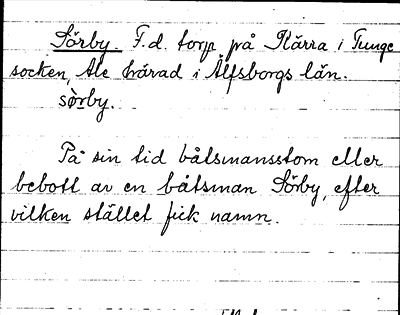 Sörby. F. d. torp på Kärra i Tunge
socken, Ale härad i Älfsborgs län.
sörby.
På sin tid båtsmanstom eller
bebott av en båtsman Sörby, efter
vilken stället fick namn.